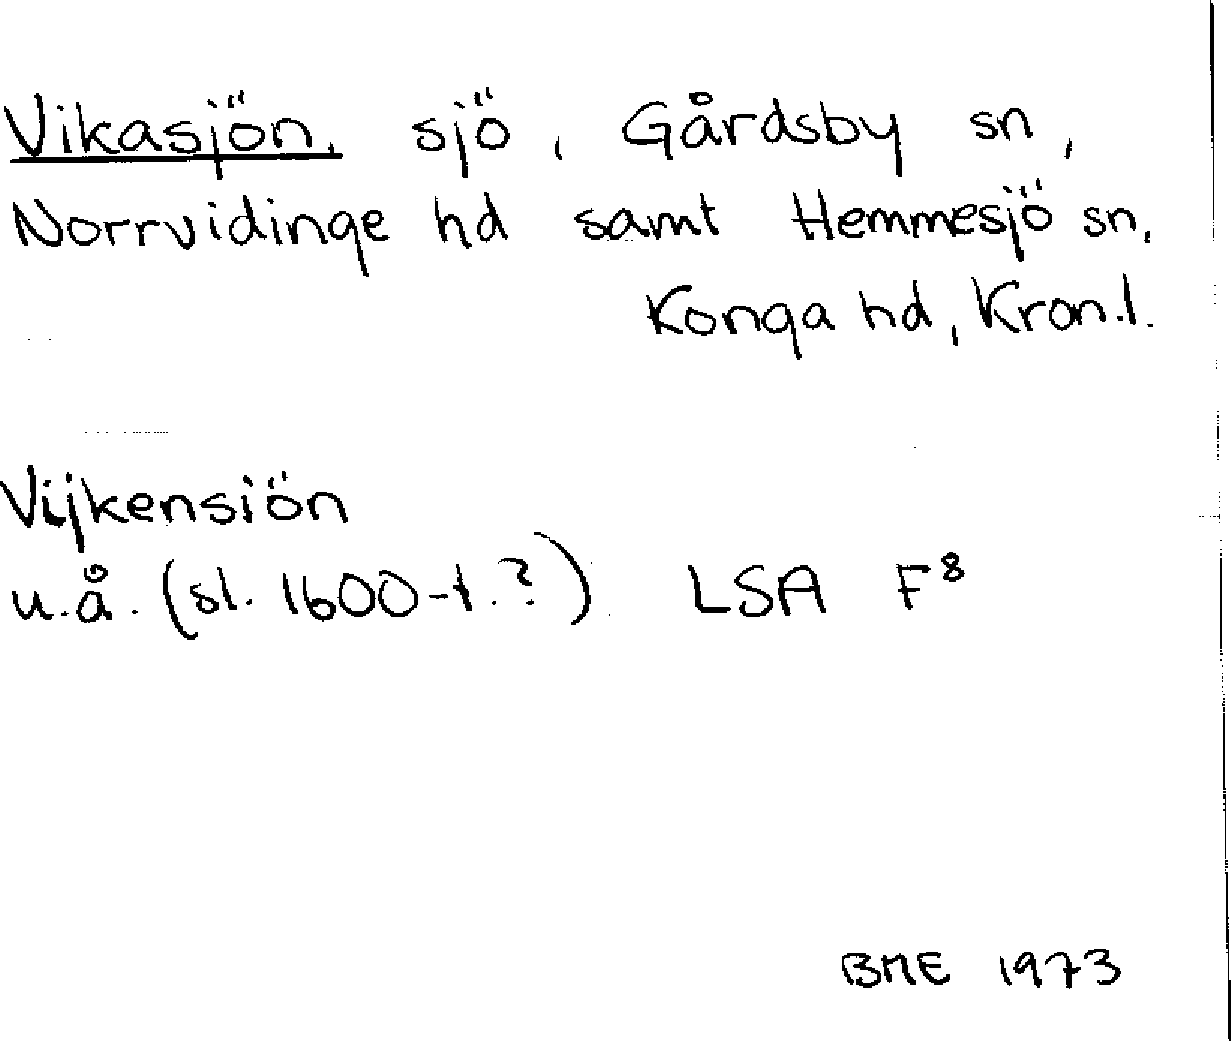 Vikasjön, sjö, Gårdsby sn,
Norrvidinge hd samt Hemmesjö sn,
Konga hd, Kron.l.
Vijkensiön
u.å. (sl. 1600-t.?) LSA F⁸
BME 1973